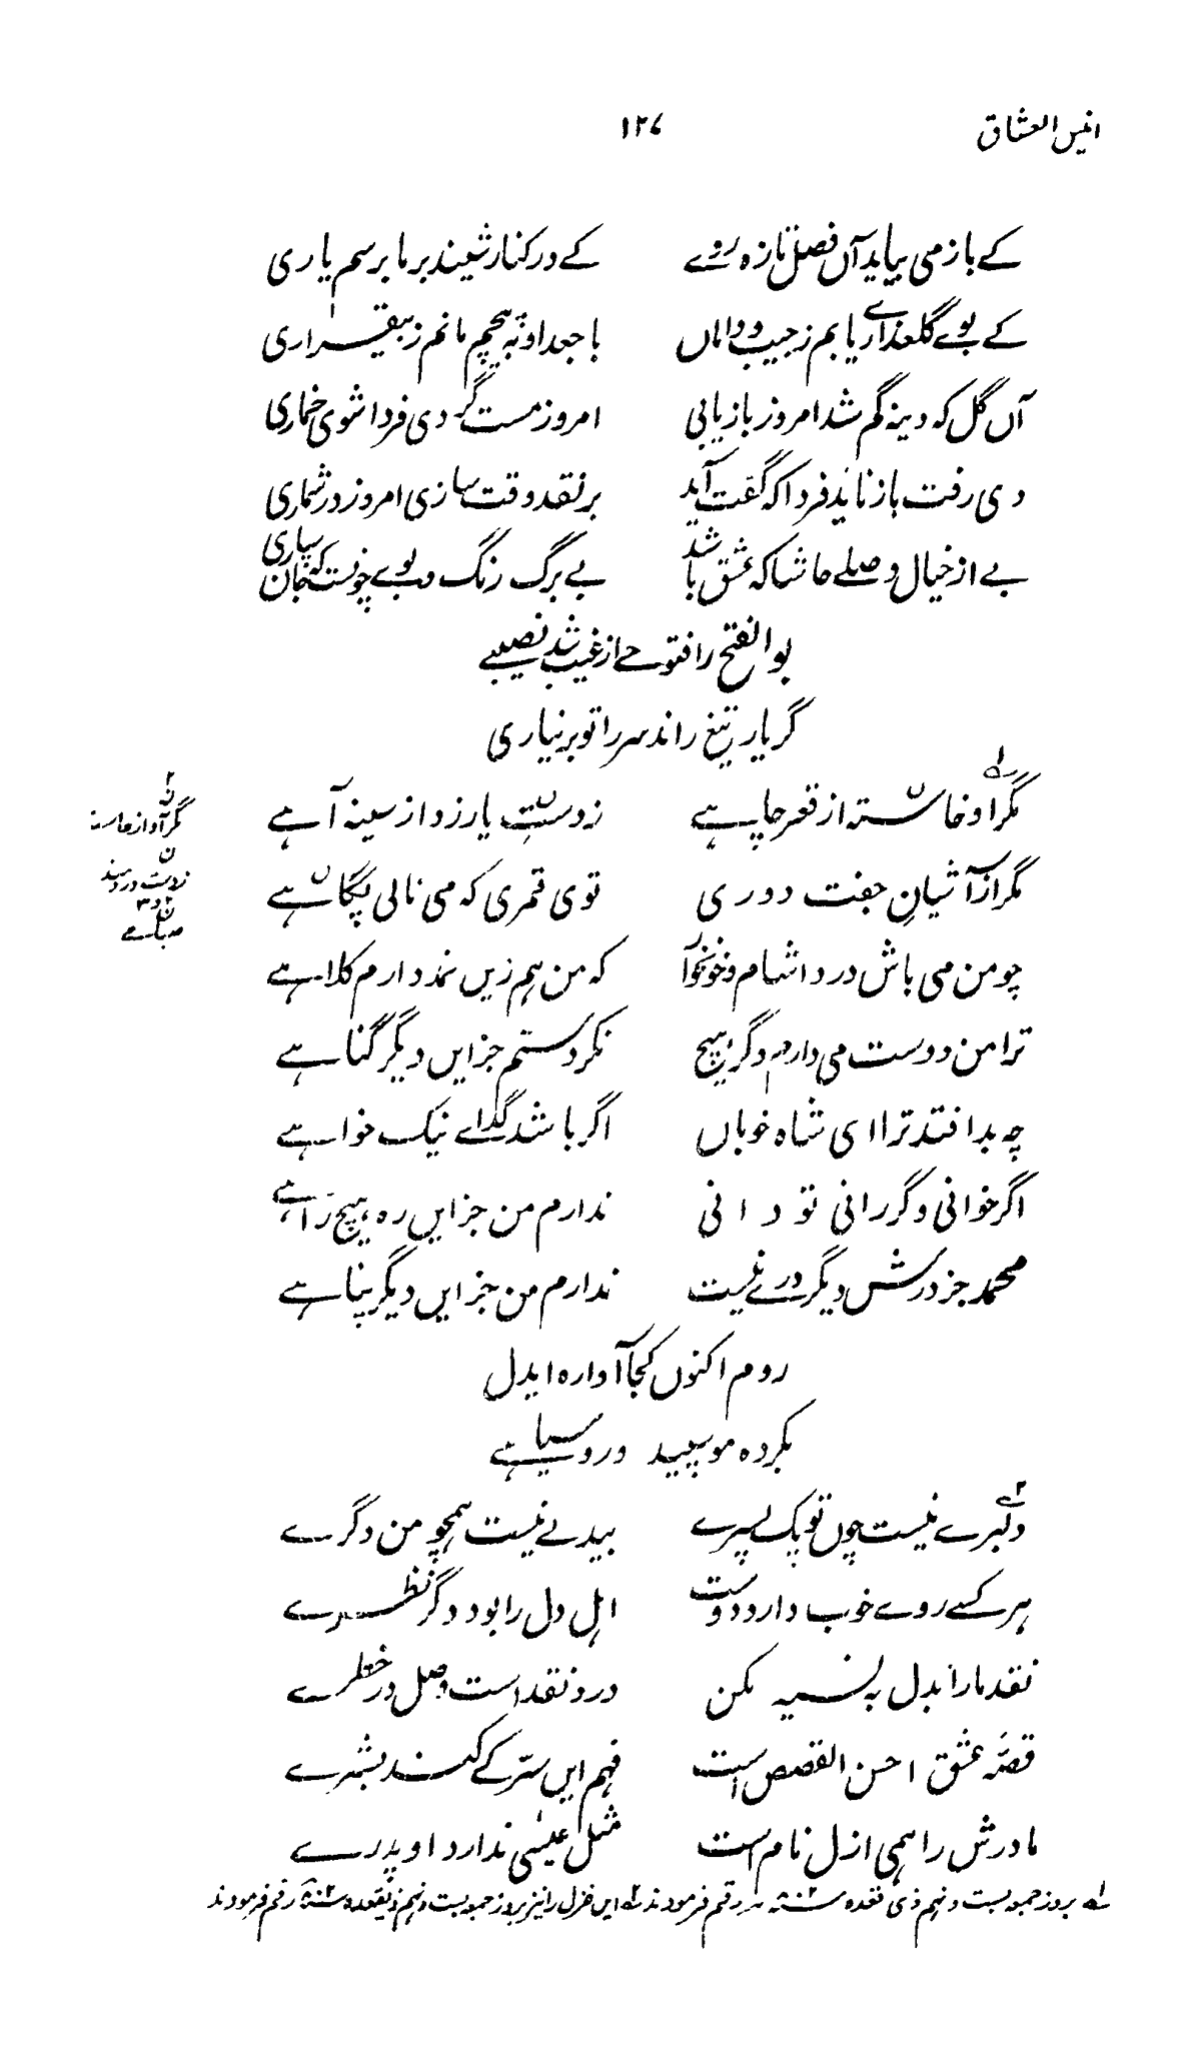 انیس العشاق ۱۲۷
کے باز می بیاید آں فصل تازہ روے کے در کنار شیند بر ما برسم یاری
کے بوے گلعذارے یابم ز جیب و داماں با جعد او نہ پیچم مانم ز بیقراری
آں گل کہ دینہ گم شد امروز بازیابی امروز مست گردی فردا شوی خماری
دی رفت باز ناید فردا کہ گفت آید بر نقد وقت سازی امروز در شماری
بے از خیال وصلے حاشا کہ عشق باشد بے برگ رنگ و بوے چونست کہ جان سپاری
بوالفتح را فتوحے از غیب شد نصیبے
گر یار تیغ راند سر را تو بر نیاری
مگر او خاستہ از قعر چاہے ز دست یار زد از سینہ آہے
مگر از آشیان جفت دوری توی قمری کہ می نالی پگاہے
چو من می باش درد آشام و خونخوار کہ من ہم زیں نمد دارم کلاہے
ترا من دوست می دارم دگر ہیچ نکردستم جز ایں دیگر گناہے
چہ بد افتد ترا ای شاہ خوباں اگر باشد گداے نیک خواہے
اگر خوانی و گر رانی تو دانی ندارم من جز ایں رہ ہیچ راہے
محمد جز درش دیگر درے نیست ندارم من جز ایں دیگر پناہے
روم اکنوں کجا آوارہ ایدل
بکردہ مو سپید و رو سیاہے
دلبرے نیست چوں تو یک پسرے بیدلے نیست ہمچو من دگرے
ہر کسے روے خوب دارد دوست اہل دل را بود دگر نظرے
نقد ما را بدل بہ نسیہ مکن درد نقد است وصل در خطرے
قصّہ عشق احسن القصص است فہم ایں سرّ کے کند بشرے
مادرش را ہمی ازل نام است مثل عیسٰی ندارد او پدرے
لہ بروز جمعہ بست و نہم ذی قعدہ رقم فرمودند ایں غزل را نیز بروز جمعہ بست و نہم ذیقعدہ رقم فرمودند